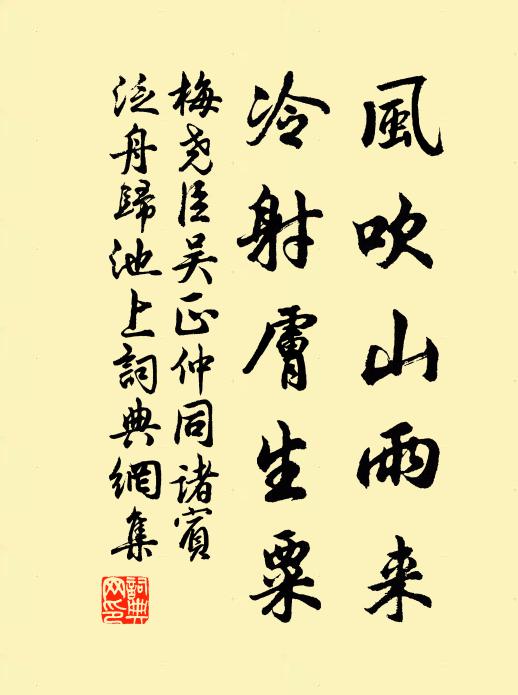 風吹山雨来
冷射膚生粟
梅尧臣吴正仲同诸賓
泛舟歸池上詞典網集
詞典
网印